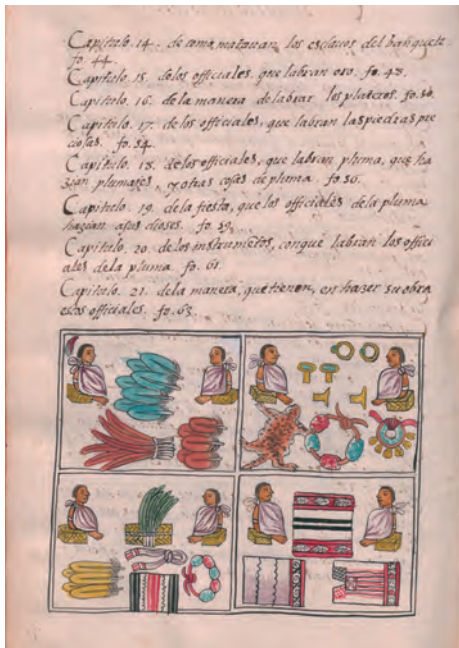 Capitulo. 14. de como matauan los esclauos del banquete
fo. 44.
Capitulo. 15. delos officiales. que labran oro. fo. 48.
Capitulo. 16. dela manera de labrar los plateros. fo. 50.
Capitulo. 17. de los officiales, que labran las piedras pre
ciosas. fo. 54.
Capitulo. 18. de los officiales, que labran pluma, que ha
zian plumajes, y otras cosas de pluma. fo. 56.
Capitulo. 19. dela fiesta, que los officiales de la pluma
hazian a sus dioses. fo. 59.
Capitulo. 20. de los instrumētos, conque labran los offici
ales dela pluma. fo. 61.
Capitulo. 21. dela manera, que tienen, en hazer su obra
estos officiales. fo. 63.